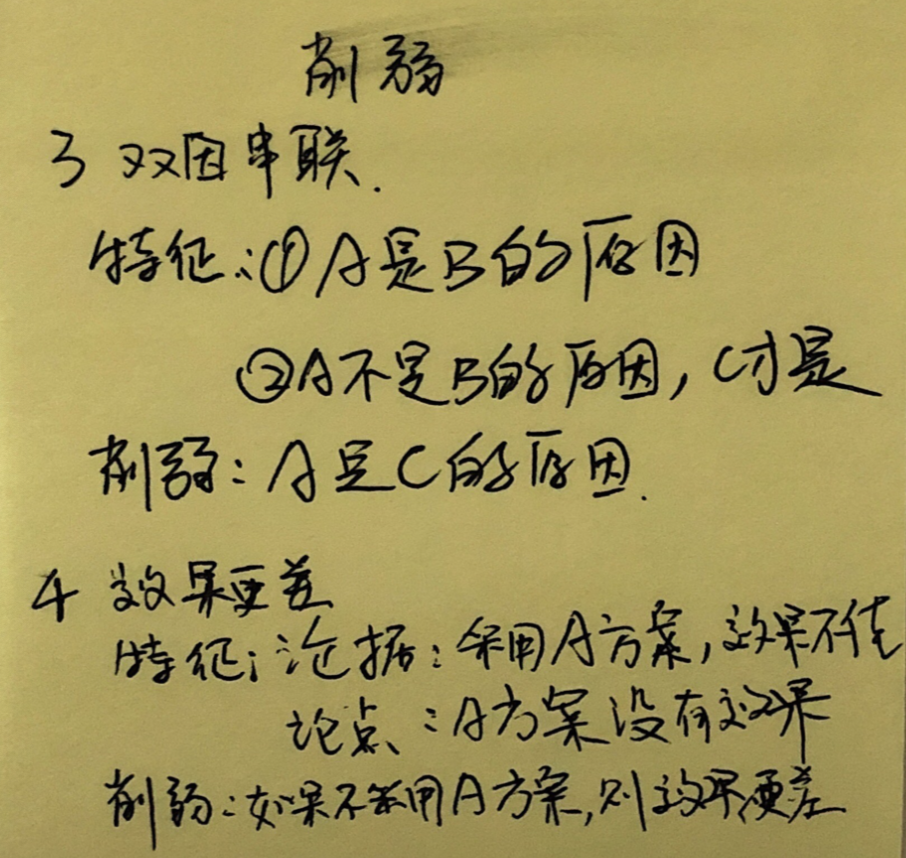 削弱
3 双因串联.
特征:①A是B的原因
②A不是B的原因,C才是
削弱:A是C的原因.
4 效果更差
特征:论据:采用A方案,效果不佳
论点:A方案没有效果
削弱:如果不采用A方案,则效果更差